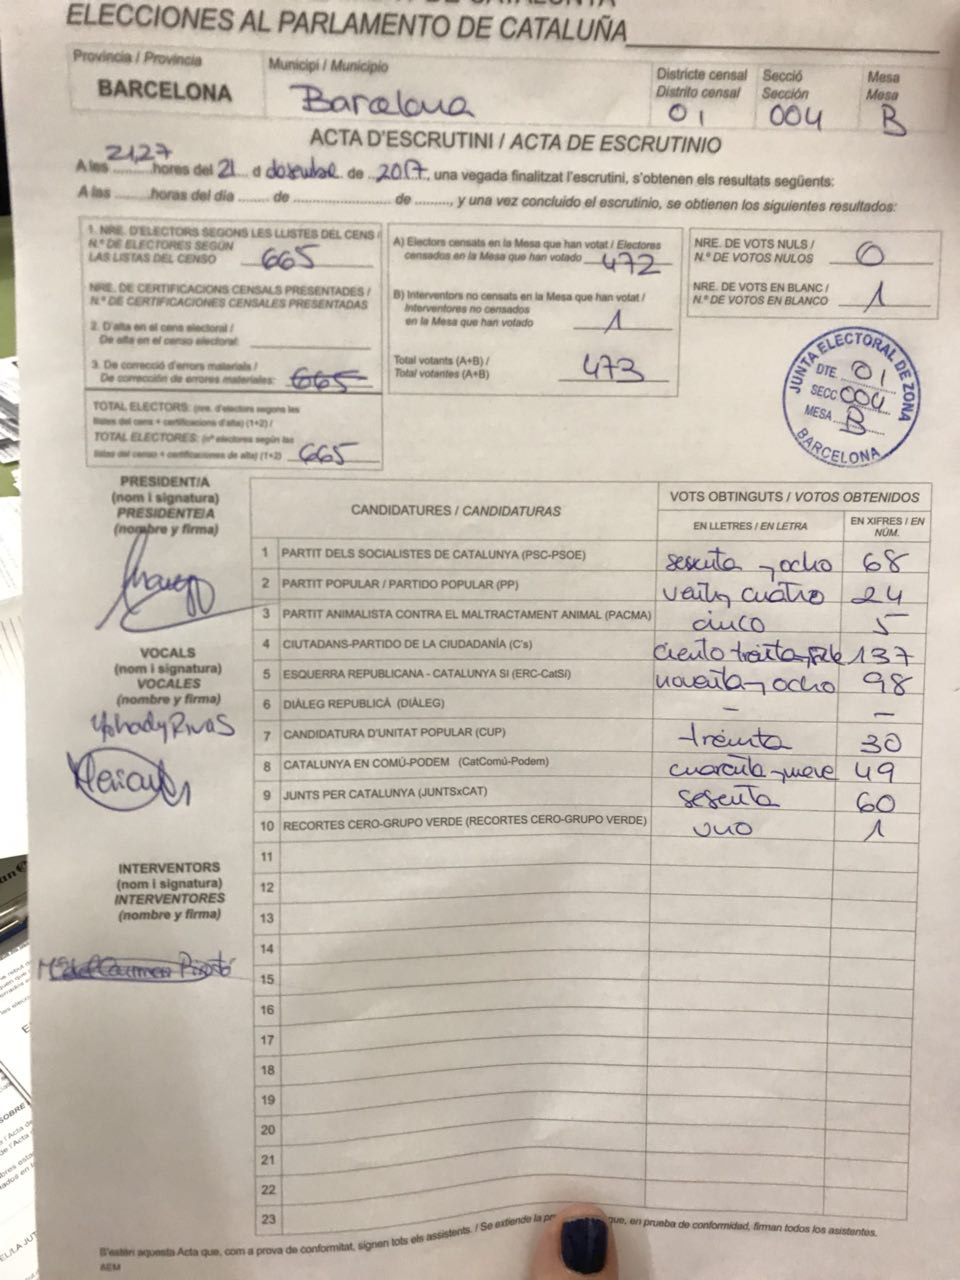 ELECCIONES AL PARLAMENTO DE CATALUÑA
Província / Provincia
BARCELONA
Municipi / Municipio
Barcelona
Districte censal
Distrito censal
01
Secció
Sección
004
Mesa
Mesa
B
ACTA D'ESCRUTINI / ACTA DE ESCRUTINIO
A les 21,27 hores del 21 d desembre de 2017, una vegada finalitzat l'escrutini, s'obtenen els resultats següents:
A las ........ horas del día ........ de .................... de ........, y una vez concluido el escrutinio, se obtienen los siguientes resultados:
1. NRE. D'ELECTORS SEGONS LES LLISTES DEL CENS /
N.º DE ELECTORES SEGÚN
LAS LISTAS DEL CENSO 665
NRE. DE CERTIFICACIONS CENSALS PRESENTADES /
N.º DE CERTIFICACIONES CENSALES PRESENTADAS
2. D'alta en el cens electoral /
De alta en el censo electoral:
3. De correcció d'errors materials /
De corrección de errores materiales: 665
TOTAL ELECTORS: (nre. d'electors segons les
llistes del cens + certificacions d'alta) (1+2) /
TOTAL ELECTORES: (nº electores según las
listas del censo + certificaciones de alta) (1+2) 665
A) Electors censats en la Mesa que han votat / Electores
censados en la Mesa que han votado 472
B) Interventors no censats en la Mesa que han votat /
Interventores no censados
en la Mesa que han votado 1
Total votants (A+B) /
Total votantes (A+B) 473
NRE. DE VOTS NULS /
N.º DE VOTOS NULOS 0
NRE. DE VOTS EN BLANC /
N.º DE VOTOS EN BLANCO 1
JUNTA ELECTORAL DE ZONA
DTE. 01
SECC 004
MESA B
BARCELONA
PRESIDENT/A
(nom i signatura)
PRESIDENTE/A
(nombre y firma)
VOCALS
(nom i signatura)
VOCALES
(nombre y firma)
INTERVENTORS
(nom i signatura)
INTERVENTORES
(nombre y firma)
CANDIDATURES / CANDIDATURAS
VOTS OBTINGUTS / VOTOS OBTENIDOS
EN LLETRES / EN LETRA
EN XIFRES / EN NÚM.
1 PARTIT DELS SOCIALISTES DE CATALUNYA (PSC-PSOE) sesenta y ocho 68
2 PARTIT POPULAR / PARTIDO POPULAR (PP) veinty cuatro 24
3 PARTIT ANIMALISTA CONTRA EL MALTRACTAMENT ANIMAL (PACMA) cinco 5
4 CIUTADANS-PARTIDO DE LA CIUDADANÍA (C's) ciento treinta y siete 137
5 ESQUERRA REPUBLICANA - CATALUNYA SÍ (ERC-CatSí) noventa y ocho 98
6 DIÀLEG REPUBLICÀ (DIÀLEG) – –
7 CANDIDATURA D'UNITAT POPULAR (CUP) treinta 30
8 CATALUNYA EN COMÚ-PODEM (CatComú-Podem) cuarenta y nueve 49
9 JUNTS PER CATALUNYA (JUNTSxCAT) sesenta 60
10 RECORTES CERO-GRUPO VERDE (RECORTES CERO-GRUPO VERDE) uno 1
11
12
13
14
15
16
17
18
19
20
21
22
23
S'estén aquesta Acta que, com a prova de conformitat, signen tots els assistents. / Se extiende la que, en prueba de conformidad, firman todos los asistentes.
AEM